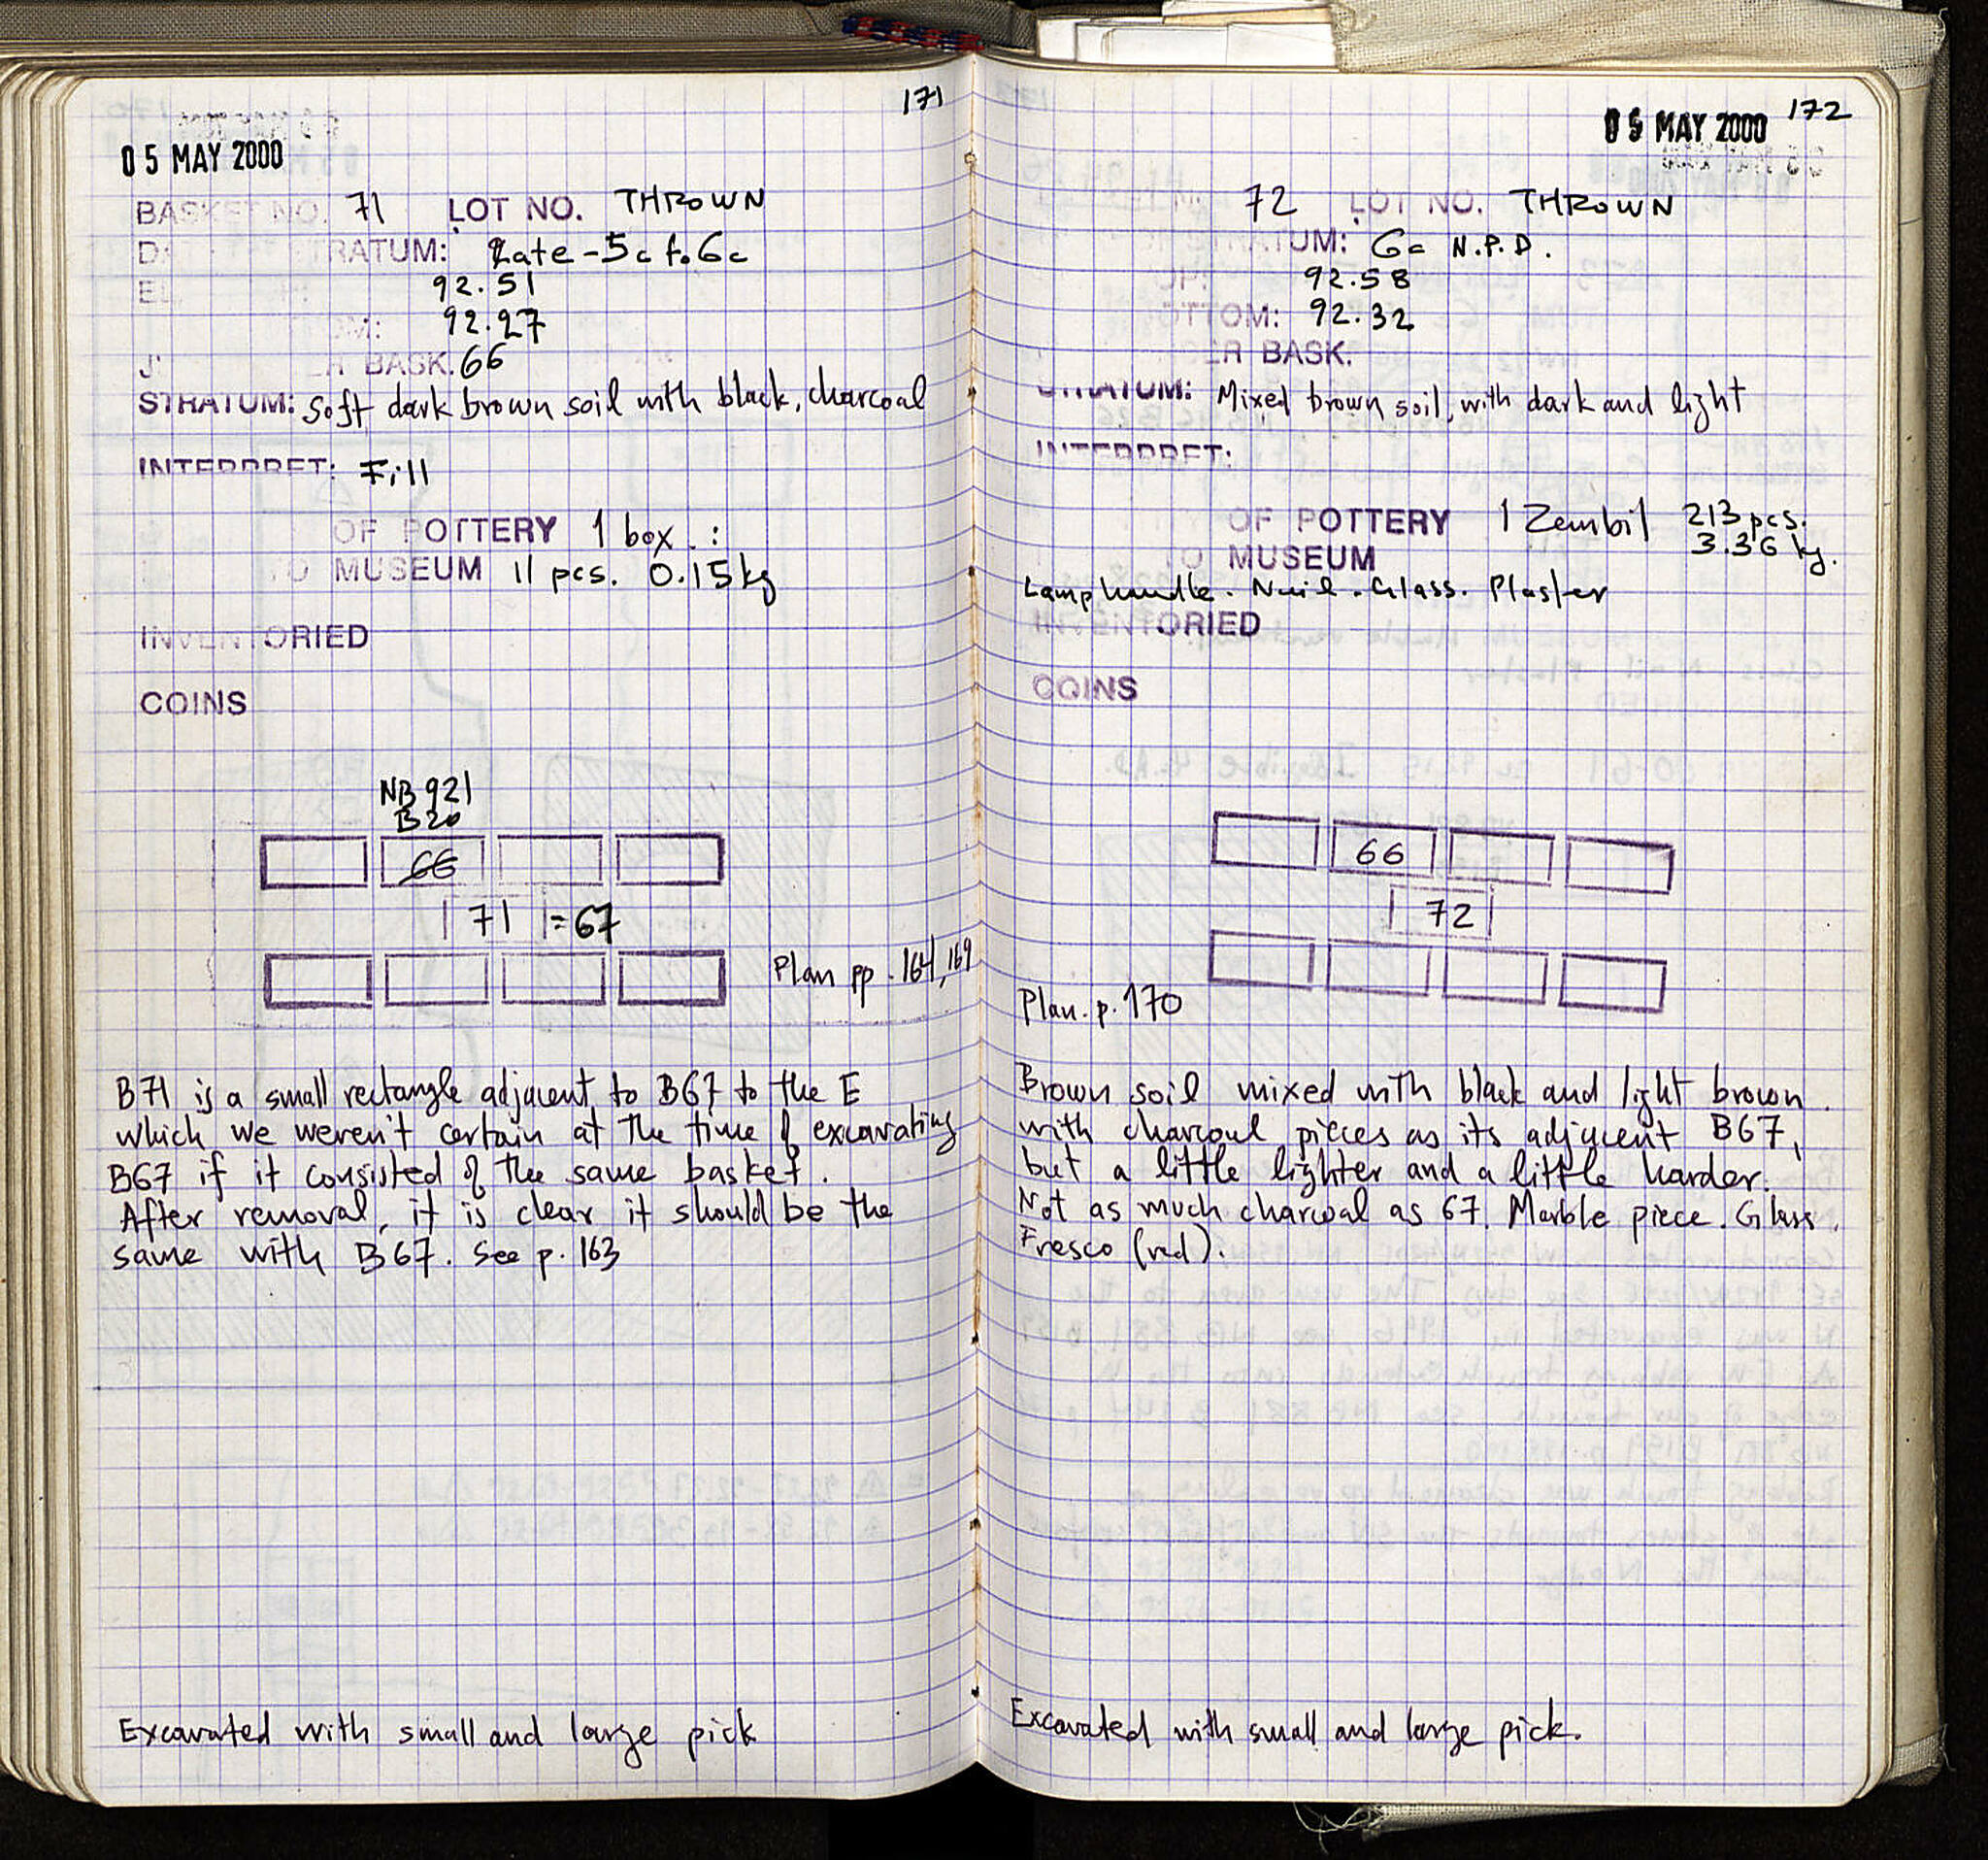 171
05 MAY 2000
BASKET NO. 71 LOT NO. THROWN
RATUM: Late-5c to 6c
92.51
92.27
BASK. 66
STRATUM: Soft dark brown soil with black, charcoal
INTERPRET: Fill
OF POTTERY 1 box :
TO MUSEUM 11 pcs. 0.15kg
INVENTORIED
COINS
NB 921
B20
66
71 = 67
Plan pp. 164, 169
B71 is a small rectangle adjacent to B67 to the E
which we weren't certain at the time of excavating
B67 if it consisted of the same basket.
After removal, it is clear it should be the
same with B67. See p. 163
Excavated with small and large pick
172
05 MAY 2000
72 LOT NO. THROWN
STRATUM: 6c N.P.D.
92.58
BOTTOM: 92.32
ER BASK.
STRATUM: Mixed brown soil, with dark and light
INTERPRET:
OF POTTERY 1 Zembil 213 pcs.
3.36 kg.
TO MUSEUM
Lamp handle. Nail. Glass. Plaster
INVENTORIED
COINS
66
72
Plan. p. 170
Brown soil mixed with black and light brown.
with charcoal pieces as its adjacent B67,
but a little lighter and a little harder.
Not as much charcoal as 67. Marble piece. Glass.
Fresco (red).
Excavated with small and large pick.